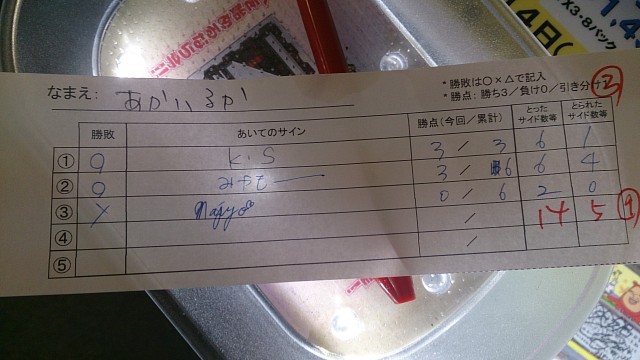 1,4
X3·8パック
14日(
*勝敗は○×△で記入
*勝点:勝ち3/負け0/引き分け
なまえ: あかいるか
勝敗 あいてのサイン 勝点(今回/累計) とった サイド数等 とられた サイド数等
① ○ K.S 3 / 3 6 1
② ○ 3 / 6 6 4
③ × 0 / 6 2 0
④ / 14 5
⑤ /